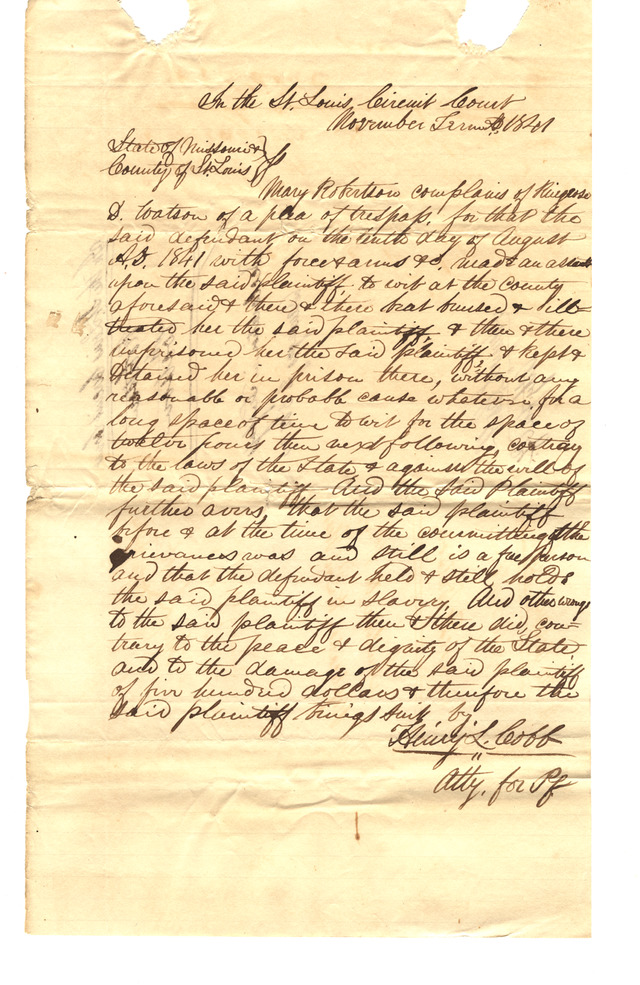 In the St. Louis Circuit Court
November Term A.D. 1841
State of Missouri &
County of St. Louis } ss
Mary Robertson complains of Ringrose
D. Watson of a plea of trespass, for that the
said defendant, on the tenth day of August
A.D. 1841 with force & arms &c. made an assault
upon the said plaintiff, to wit at the County
aforesaid & then & there beat bruised & ill-
treated her the said plaintiff, & then & there
imprisoned her the said plaintiff, & kept &
detained her in prison there, without any
reasonable or probable cause whatever for a
long space of time to wit for the space of
twelve hours then next following, contrary
to the laws of the State & against the will of
the said plaintiff. And the said Plaintiff
further avers, that the said plaintiff
before & at the time of the committing of the
grievances was and still is a free person
and that the defendant held & still holds
the said plaintiff in slavery. And other wrongs
to the said plaintiff then & there did, con=
trary to the peace & dignity of the State
and to the damage of the said plaintiff
of five hundred dollars & therefore the
said plaintiff brings suit by
Henry L. Cobb
Atty. for Pff